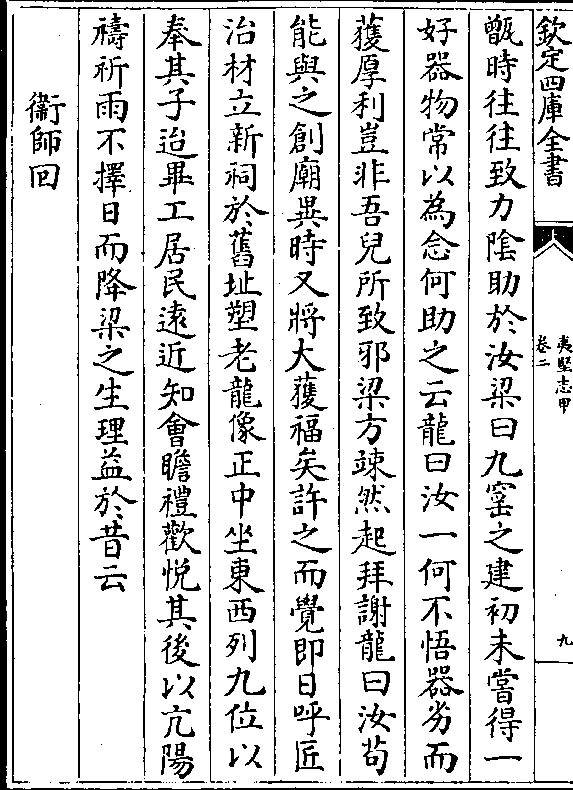 欽定四庫全書
夷堅志甲
卷二
九
甑時往往致力陰助於汝梁曰九窑之建初未嘗得一
好器物常以為念何助之云龍曰汝一何不悟器劣而
獲厚利豈非吾兒所致邪梁方竦然起拜謝龍曰汝茍
能與之創廟異時又將大獲福矣許之而覺即日呼匠
治材立新祠於舊址塑老龍像正中坐東西列九位以
奉其子迨畢工居民遠近知會瞻禮歡悅其後以亢陽
禱祈雨不擇日而降梁之生理益於昔云
衞師回